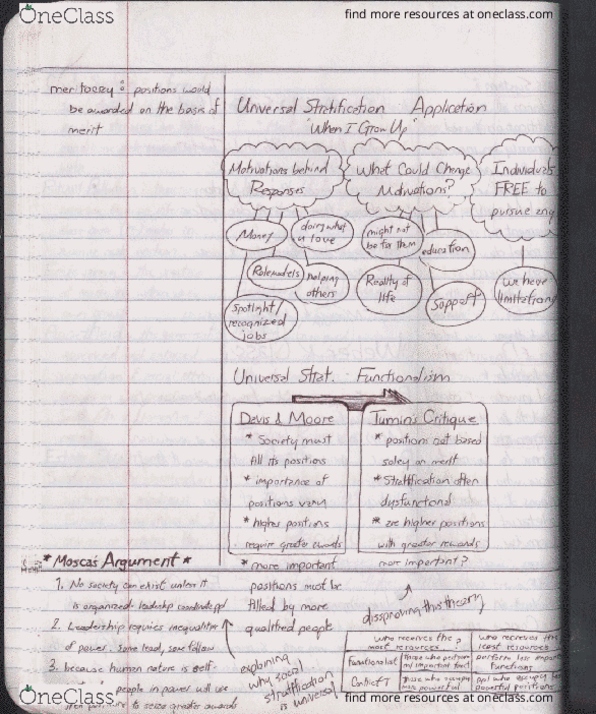 OneClass
find more resources at oneclass.com
meritocsy : positions would
be awarded on the basis of
merit
Universal Stratification Application
"When I Grow Up"
Motivations behind
Responses
Money
doing what
u love
Rolemodels
helping
others
Spotlight/
recognized
jobs
What Could Change
Motivations?
might not
be for them
education
Reality of
life
Support
Individuals
FREE to
pursue any
we have
limitations
Universal Strat. Functionalism
Davis & Moore
* Society must
All its positions
* importance of
positions vary
* higher positions
require greater
* more important
positions must be
filled by more
qualified people
Tumin's Critique
* positions not based
soley on merit
* Stratification often
dysfunctional
* are higher positions
with greater rewards
more important?
disproving this theory
* Mosca's Argument *
1. No society can exist unless it
is organized - leadership
2. Leadership requires inequalities
of power. Some lead, some follow
3. because human nature is self-
people in power will use
to seize greater awards
explaining
why social
stratification
is universal
who receives the
most resources
who receives the
least resources
Functionalist
those who perform
most important funct
perform less
functions
Conflict T
those who occupy
more powerful
ppl who occupy
positions
OneClass
find more resources at oneclass.com